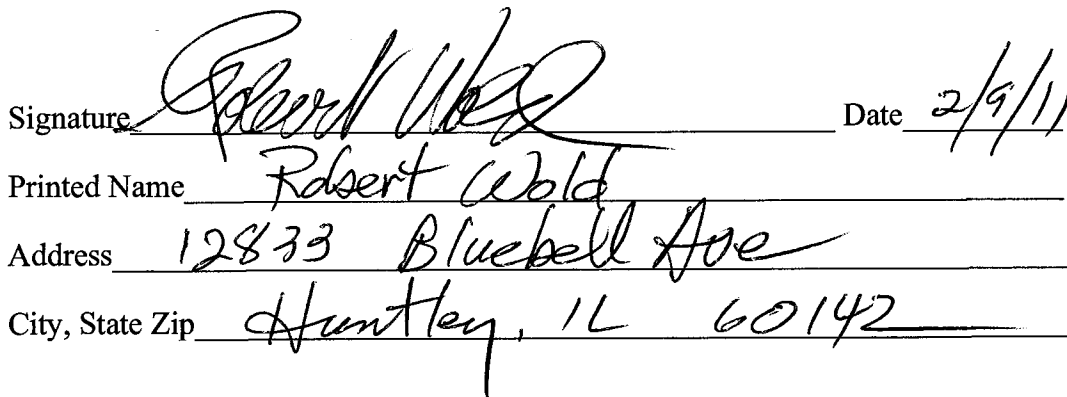 Signature Robert Wold Date 2/9/11
Printed Name Robert Wold
Address 12833 Bluebell Ave
City, State Zip Huntley, IL 60142